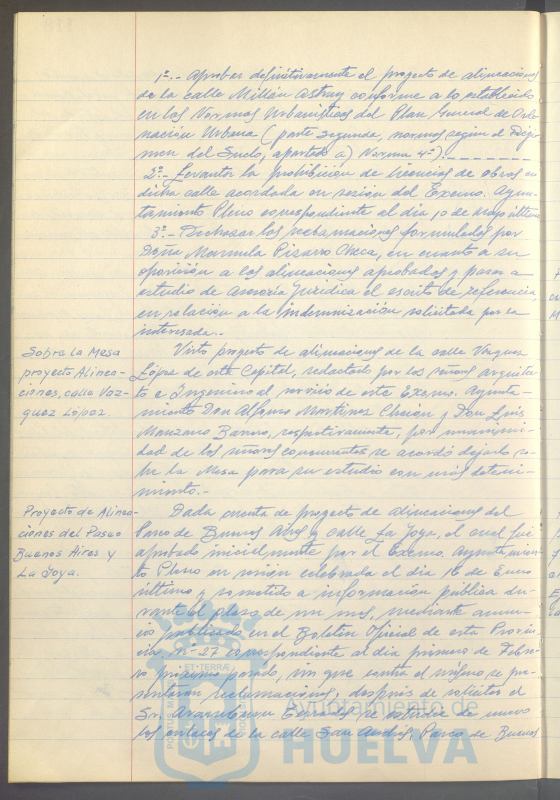 1º.- Aprobar definitivamente el proyecto de alineaciones
de la calle Millán Astray conforme a lo establecido
en las Normas Urbanísticas del Plan General de Orde-
nación Urbana (parte segunda, normas según el Régi-
men del Suelo, apartado a) Norma 4ª).-
2º.- Levantar la prohibición de licencias de obras en
dicha calle acordada en sesión del Excmo. Ayun-
tamiento Pleno correspondiente al día 10 de mayo último
3º.- Rechazar las reclamaciones formuladas por
Doña Manuela Pizarro Checa, en cuanto a su
oposición a las alineaciones aprobadas y pasar a
estudio de Asesoría Jurídica el escrito de referencia,
en relación a la indemnización solicitada por la
interesada.-
Sobre la Mesa
proyecto Alinea-
ciones, calle Váz-
quez López.
Visto proyecto de alineaciones de la calle Vázquez
López de esta Capital, redactado por los señores arquitec-
to e Ingeniero al servicio de este Excmo. Ayunta-
miento Don Alfonso Martínez Chacón y Don Luis
Manzano Barrero, respectivamente, por unanimi-
dad de los señores concurrentes se acordó dejarlo so-
bre la Mesa para su estudio con más deteni-
miento.-
Proyecto de Alinea-
ciones del Paseo
Buenos Aires y
La Joya.
Dada cuenta de proyecto de alineaciones del
Paseo de Buenos Aires y calle La Joya, el cual fué
aprobado inicialmente por el Excmo. Ayuntamien-
to Pleno en sesión celebrada el día 16 de Enero
último y sometido a información pública du-
rante el plazo de un mes, mediante anun-
cio publicado en el Boletín Oficial de esta Provin-
cia nº 27 correspondiente al día primero de Febre-
ro próximo pasado, sin que contra el mismo se pre-
sentaran reclamaciones, después de solicitar el
Sr. se estudie de nuevo
los enlaces de la calle San Andrés, Paseo de Buenos
Ayuntamiento de
HUELVA